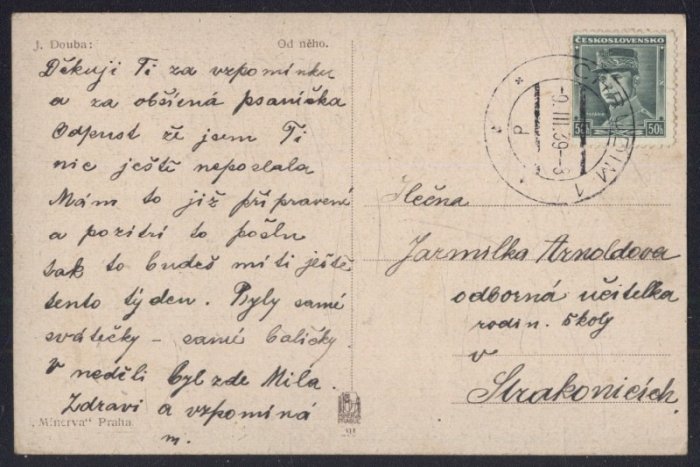 J. Douba:
Od něho.
Děkuji Ti za vzpomínku
a za obšírná psaníčka
Odpusť že jsem Ti
nic ještě neposlala
Mám to již připravené
a pozítří to pošlu
tak to budeš míti ještě
tento týden. Byly samé
svátečky – samé balíčky.
V neděli byl zde Míla.
Zdraví a vzpomíná
m.
„Minerva" Praha
ČESKOSLOVENSKO
50h 50h
CHRUDIM 1
-9.III.39-8
P
Slečna
Jarmilka Arnoldova
odborná učitelka
rodin. školy
v
Strakonicích